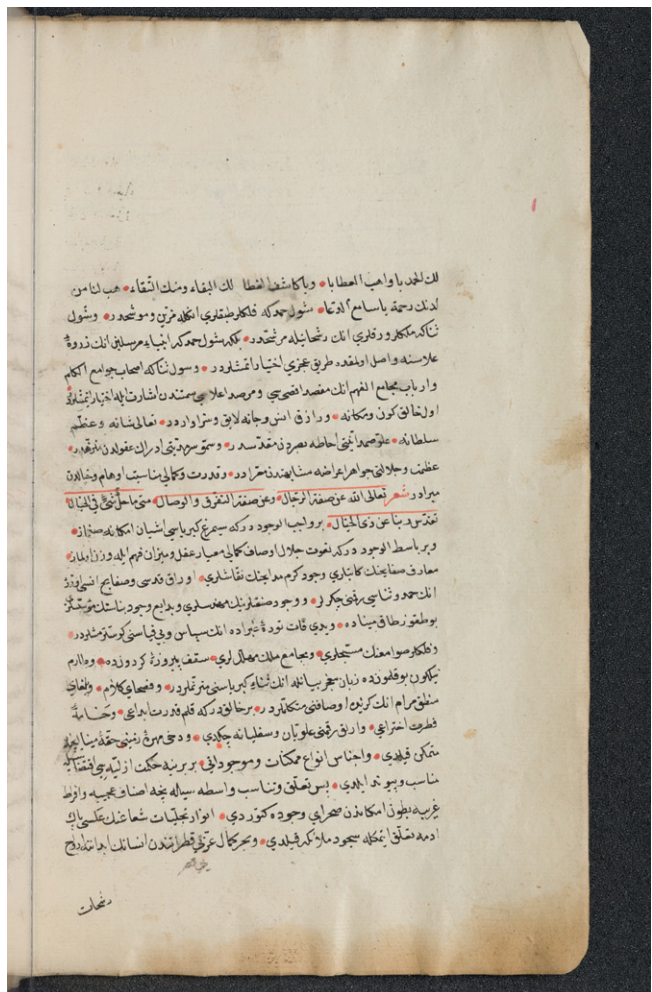 لك الحمد يا واهب العطايا • ويا كاشف الغطا لك البقاء ومنك التقاء • هب لنا من
لدنك رحمة يا سامع الدعا • شول حمد كه فلكلر طبقلرى انكله مزين وموشحدر • وشول
ثنا كه ملكلر ورقلرى انك رشحاتيله مرشحدر • بلكه شول حمد كه انبياء مرسلين انك ذروۀ
علاسنه واصل اولمقده طريق عجزى اختيار اتمشلردر • وشول ثنا كه اصحاب جوامع الكلم
وارباب مجامع الفهم انك مقصد اقصى سى ومرصد اعلا سى سمتندن اشارت ايله اختيار ايتمشلردر
اول خالق كون ومكانه • ورازق انس وجانه لايق وسزاواردر • تعالى شانه وعظم
سلطانه • علو صمدانيتى احاطه بصردن مقدسدر • وسمو سرمديتى ادراك عقولدن منزهدر •
عظمت وجلالتى جواهر اعراضه مشابهتدن معرادر • وقدرت وكمالى مناسبت اوهام وخيالدن
مبرادر شعر تعالى الله عن صفة الرجال • وعن صفة التفرق والوصال • متى ما حل شئ فى الخيال
تقدس ربنا عن ذى الخيال • بر واجب الوجوددر كه سيمرغ كبرياسى اشيان امكاندن
وبر باسط الوجوددر كه نعوت جلال اوصاف كمالى معيار عقل وميزان فهم ايله وزن اولماز •
معارف صفايحنك كاتبلرى وجود كرم مدايحنك نقاشلرى • اوراق قدسى وصفايح انسى اوزره
انك حمد وثناسى رقمنى چكرلر • ووجود صنفلرينك مهندسلرى وبدايع وجود بناسنك
بو طقوز طاق ميناده • ويدى قات توده غبراده انك سپاس وبى قياسنى كوستر مشلردر •
وفلكلر صوامعنك مسبحلرى • ومجامع ملك مهللرى • سقف پيروزۀ كردونده •
نيلكون بوقلمونده زبان معجز بيانله انك ثناء كبرياسنى مترنملردر • وفصحاى كلام • وبلغاى
منطق مرام انك كزيده اوصافنى متكلملردر • بر خالقدر كه قلم قدرت ابداعى • وخامۀ
فطرت اختراعى • وارلق رقمنى علويان وسفليانه چكدى • ودخى مهرۀ زمينى حقۀ مينا ايچنده
متمكن قيلدى • واجناس انواع ممكنات وموجوداتى • بر برينه حكمت ازليه سى اقتضاسيله
مناسب وپيوند ايلدى • پس تعلق وتناسب واسطه سيله نيجه اصناف عجيبه واوضاع
غريبه بطون امكاندن صحراى وجوده كتوردى • انوار تجليات شعاعنك عكسى پاك
ادمه تعلق ايتمكله مسجود ملائكه قيلدى • وبحر كمال عزتى قطراتندن انسانك
رشحات